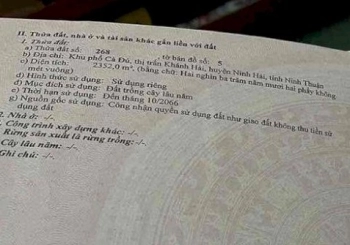 II. Thửa đất, nhà ở và tài sản khác gắn liền với đất
1. Thửa đất:
a) Thửa đất số: 268 , tờ bản đồ số: 5
b) Địa chỉ: Khu phố Cà Đú, thị trấn Khánh Hải, huyện Ninh Hải, tỉnh Ninh Thuận
c) Diện tích: 2352,0 m², (bằng chữ: Hai nghìn ba trăm năm mươi hai phẩy không
mét vuông)
d) Hình thức sử dụng: Sử dụng riêng
đ) Mục đích sử dụng: Đất trồng cây lâu năm
e) Thời hạn sử dụng: Đến tháng 10/2066
g) Nguồn gốc sử dụng: Công nhận quyền sử dụng đất như giao đất không thu tiền sử
dụng đất
2. Nhà ở: -/-.
. Công trình xây dựng khác: -/-.
Rừng sản xuất là rừng trồng: -/-.
Cây lâu năm: -/-.
Ghi chú: -/-.